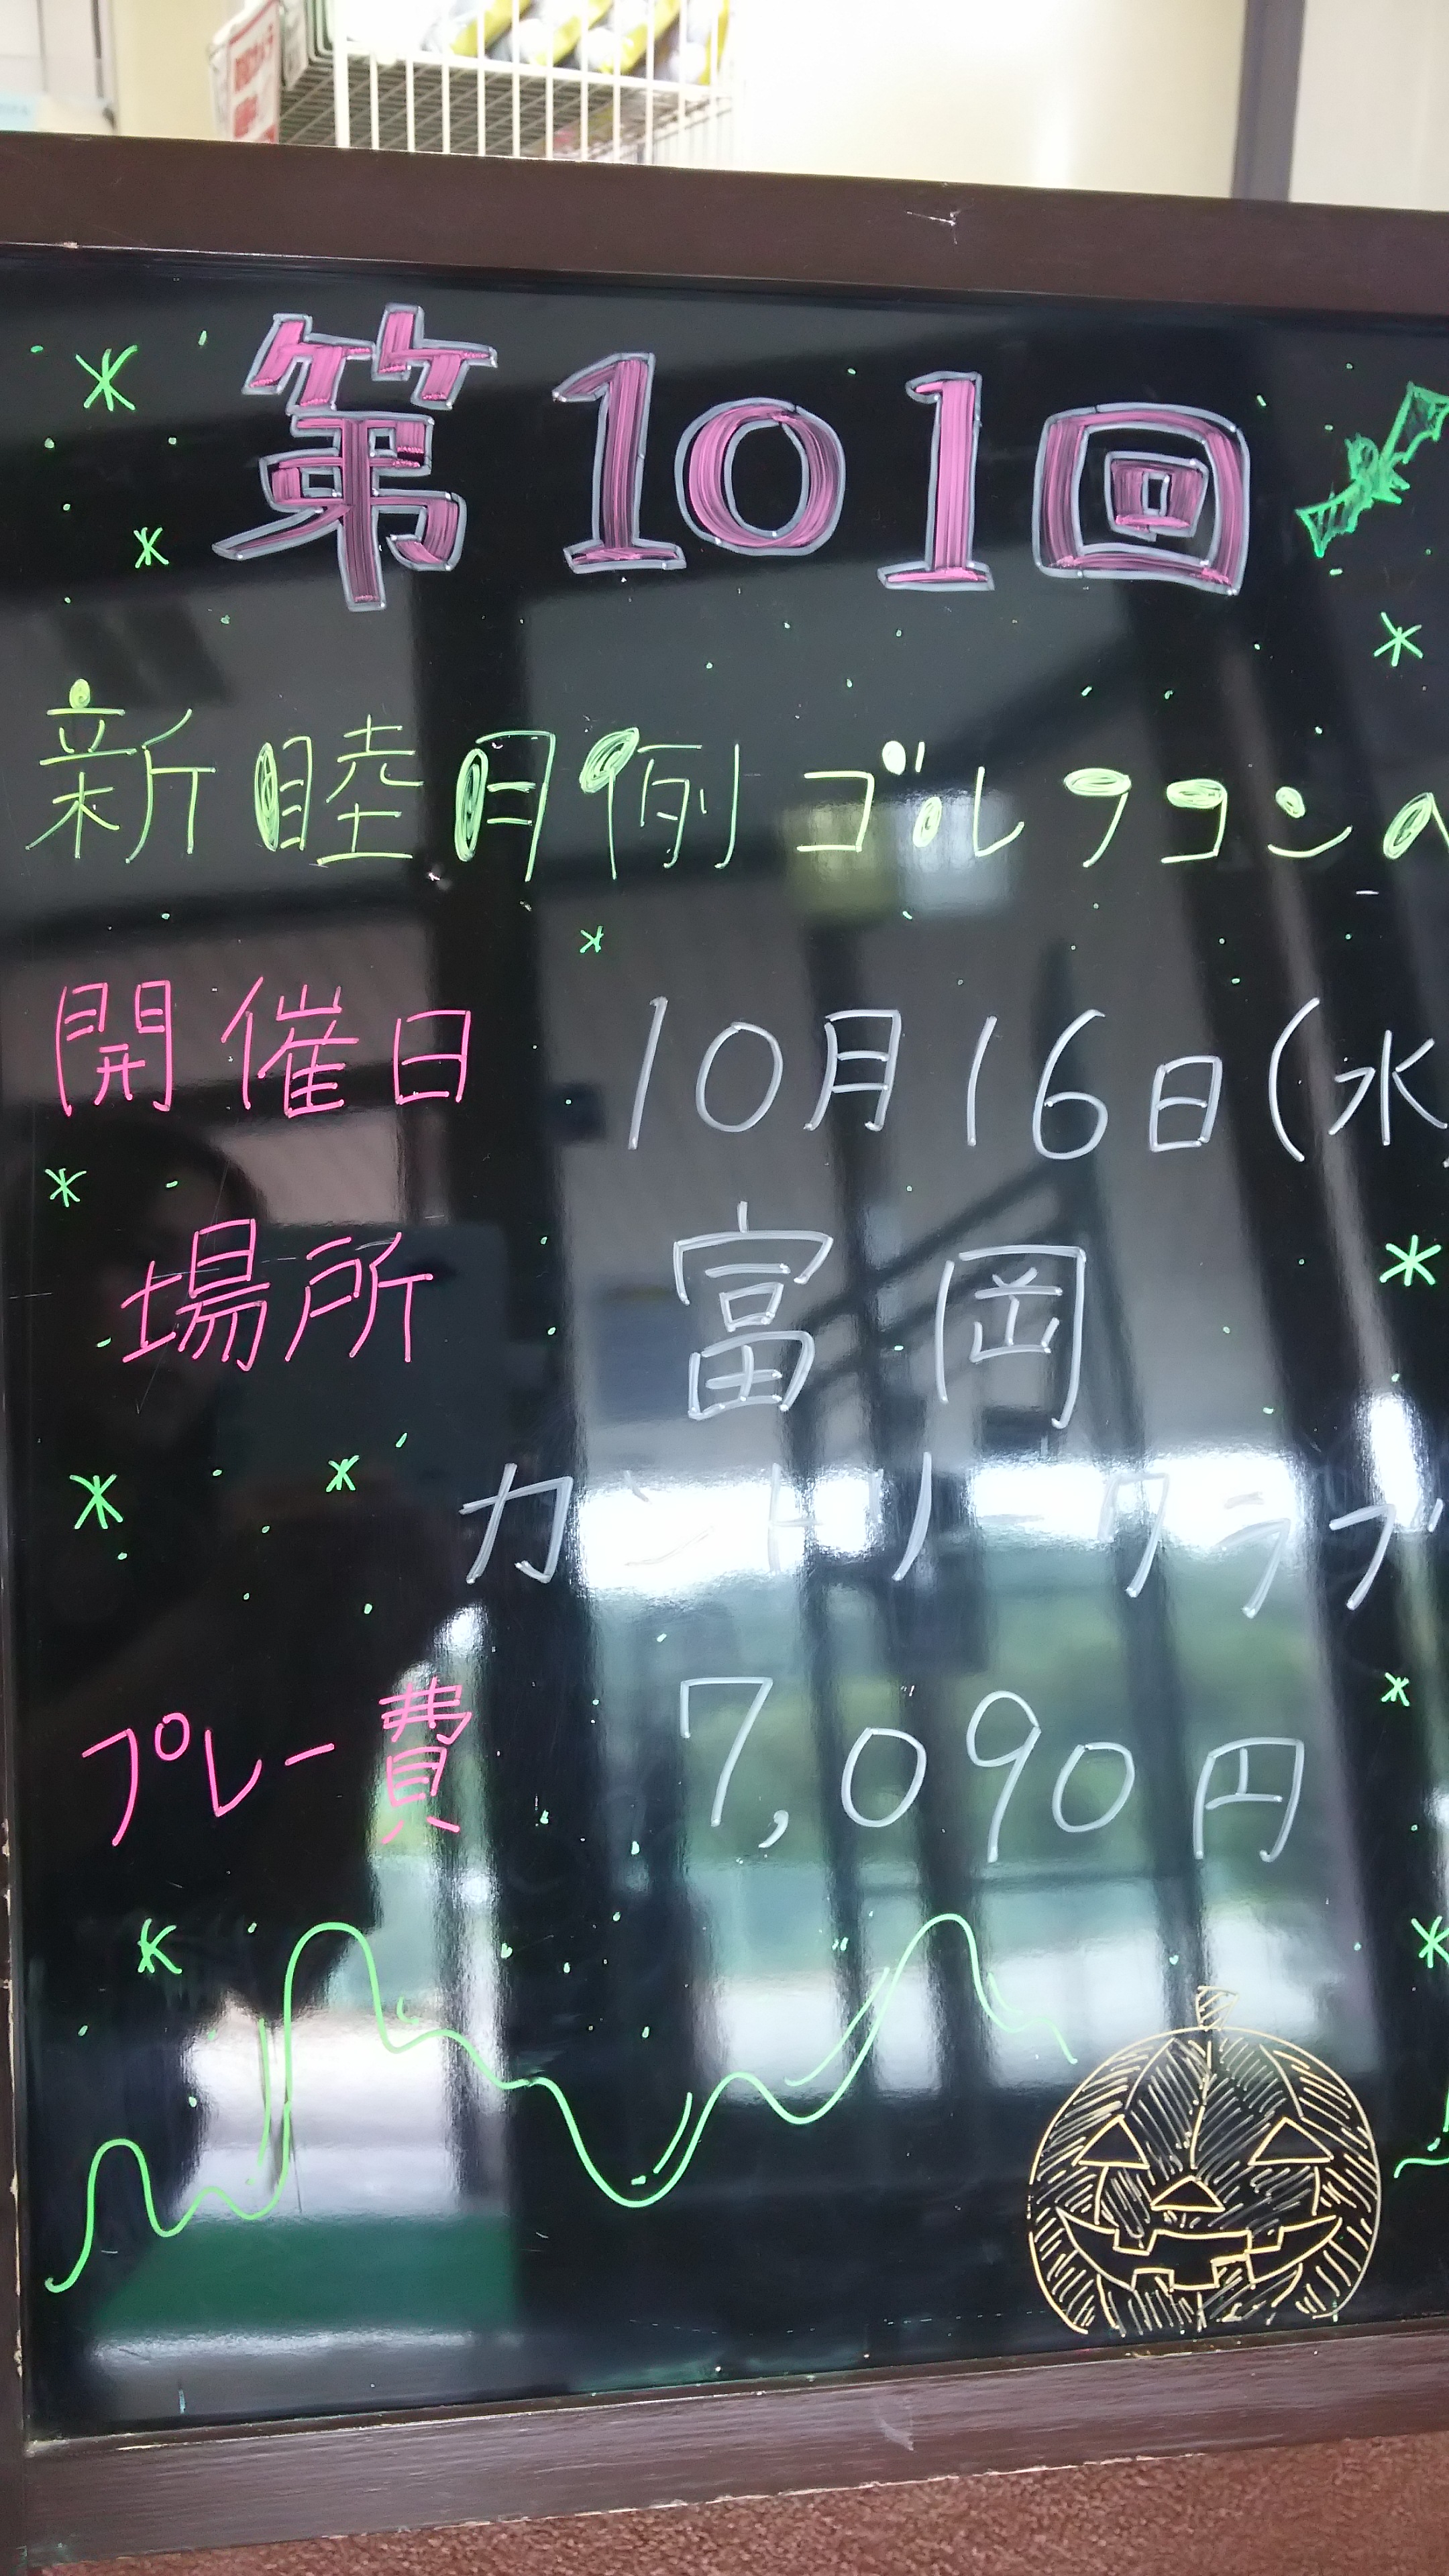 第101回
新睦月例ゴルフコンペ
開催日 10月16日(水
場所 富岡
カントリークラブ
プレー費 7,090円